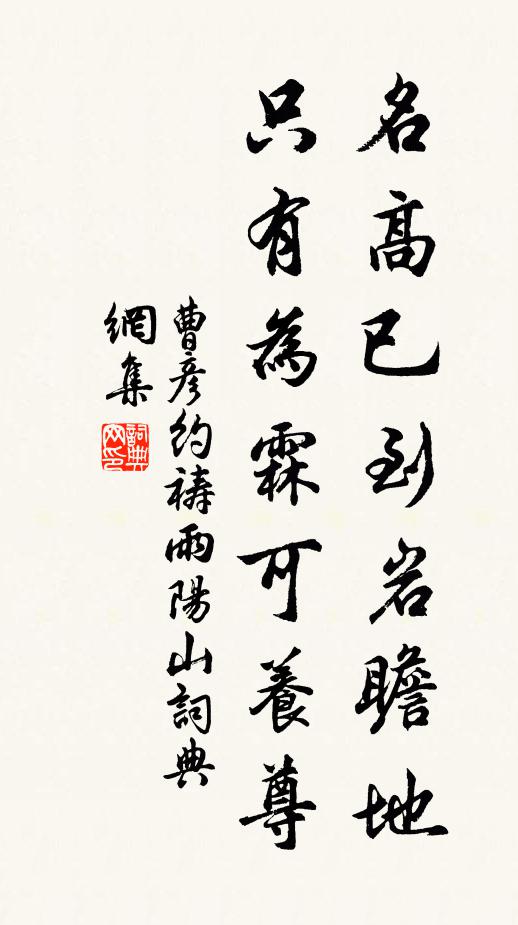 名高已到岩瞻地
只有為霖可養尊
曹彥約禱雨陽山詞典
網集
詞典網印